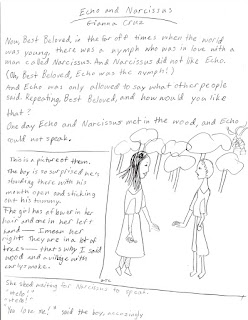 Echo and Narcissus
Eianna Cruz
Now, Best Beloved, in the far off times when the world
was young, there was a nymph who was in love with a
man called Narcissus. And Narcissus did not like Echo.
(Oh, Best Beloved, Echo was the nymph!)
And Echo was only allowed to say what other people
said. Repeating, Best Beloved, and how would you like
that?
One day Echo and Narcissus met in the wood, and Echo
could not speak.
This is a picture of them.
The boy is so surprised he is
standing there with his
mouth open and sticking
out his tummy.
The girl has a flower in her
hair and one in her left
hand — I mean her
right. They are in a lot of
trees — that's why I said
wood and a village with
curly smoke.
She stood waiting for Narcissus to speak.
"Hello!"
"Hello!"
"You love me!" said the boy, accusingly